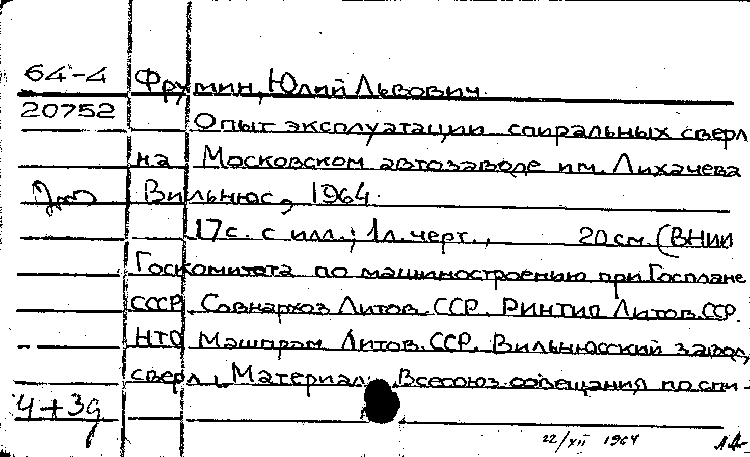 64-4 Фрумин, Юлий Львович.
20752 Опыт эксплуатации спиральных сверл
на Московском автозаводе им. Лихачева
Вильнюс, 1964.
17с. с илл.; 1л.черт., 20см. (ВНИИ
Госкомитета по машиностроению при Госплане
СССР. Совнархоз Литов. ССР. РИНТИП Литов. ССР.
НТО Машпром Литов. ССР. Вильнюсский завод
сверл. Материалы Всесоюз. совещания по спи-
4+3д
22/XII 1964